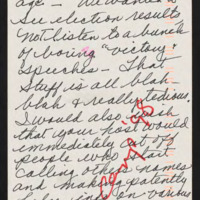 age — We wanted to
see election results
Not listen to a bunch
of boring "victory"
speeches — That
stuff is all blah
blah & really tedious.
I would also wish
that your host would
immediately cut off
people who start
calling others names
and making patently
in various